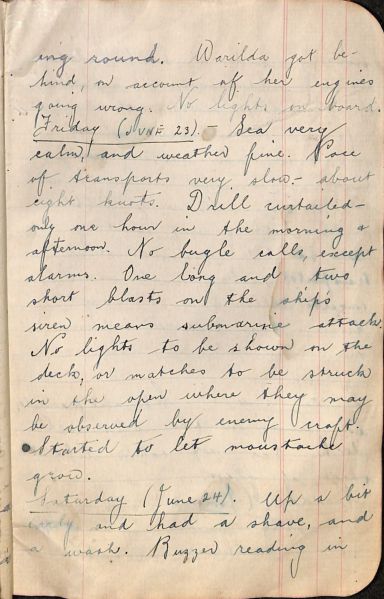 ing round. Warilda got be-
hind, on account of her engines
going wrong. No lights on board.
Friday (JUNE 23). Sea very
calm, and weather fine. Pace
of transports very slow - about
eight knots. Drill curtailed -
only one hour in the morning &
afternoon. No bugle calls, except
alarms. One long and two
short blasts on the ship's
siren means submarine attack.
No lights to be shown on the
deck, or matches to be struck
in the open where they may
be observed by enemy craft.
Started to let moustache
grow.
Saturday (June 24). Up a bit
early and had a shave, and
a wash. Buzzer reading in